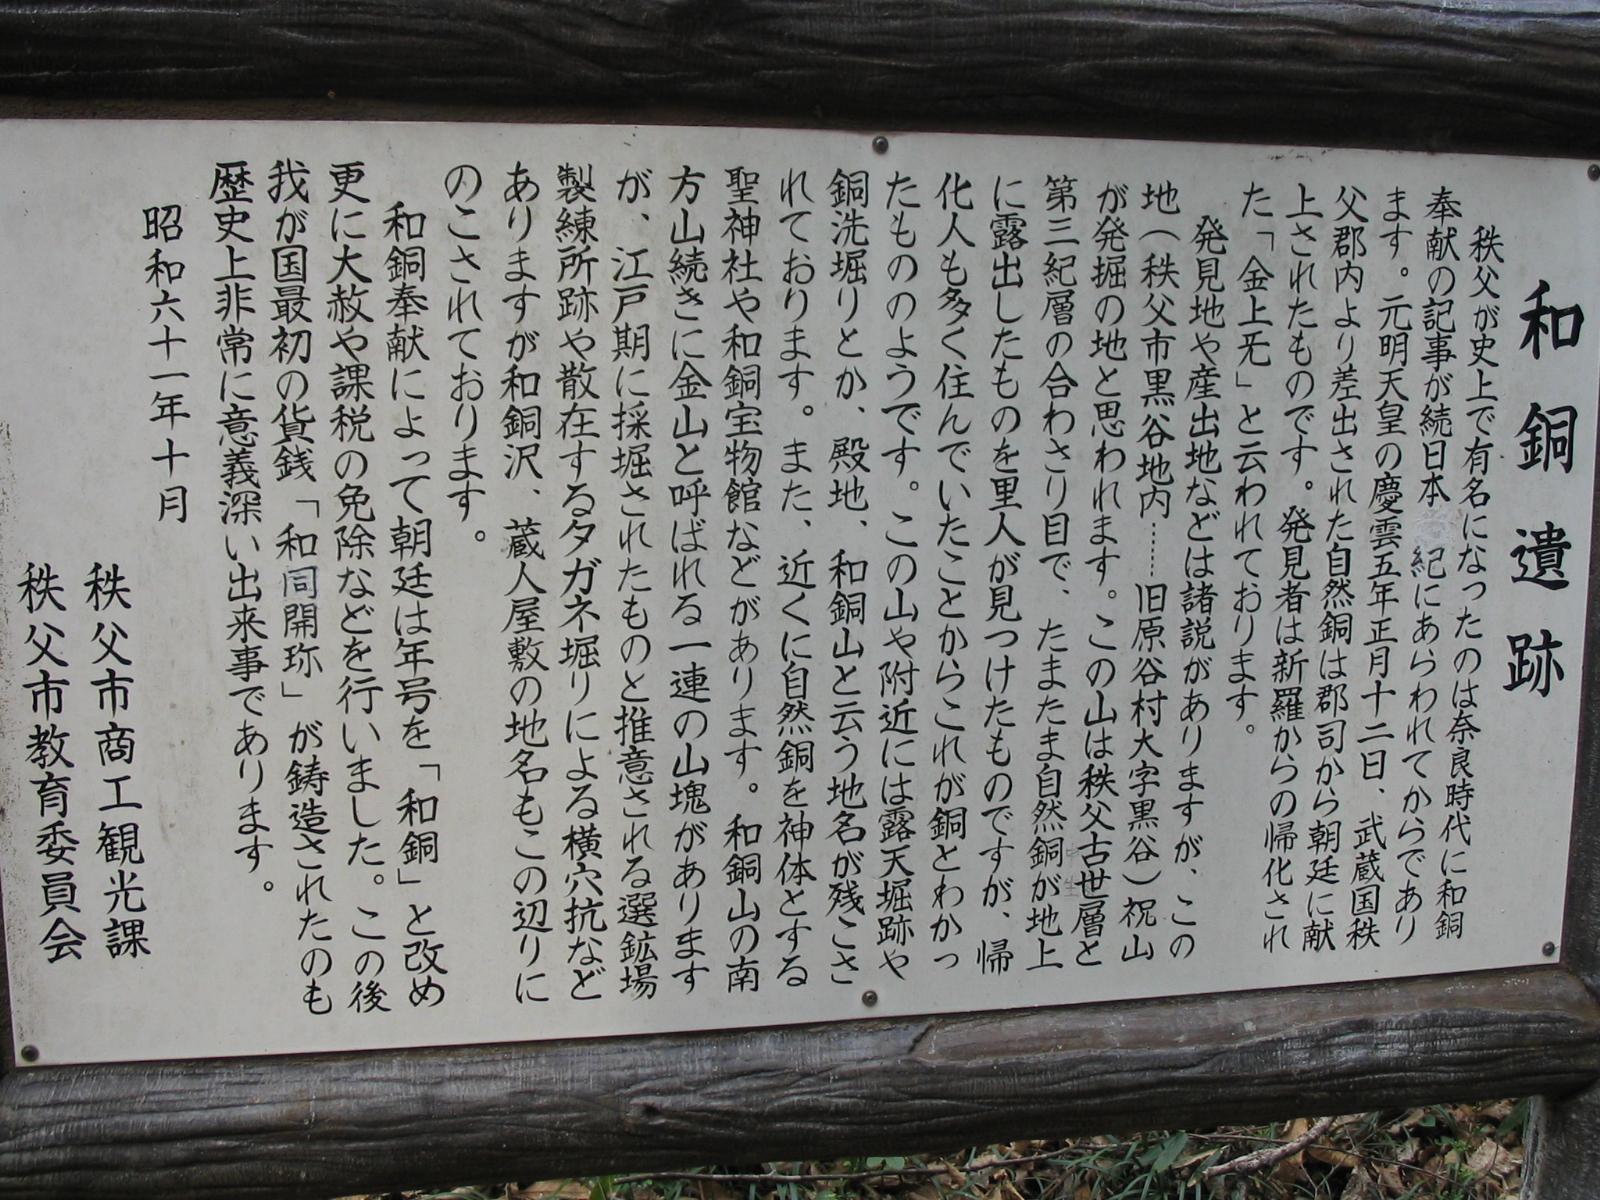 和銅遺跡
秩父が史上で有名になったのは奈良時代に和銅
奉献の記事が続日本 紀にあらわれてからであり
ます。元明天皇の慶雲五年正月十一日、武蔵国秩
父郡内より差出された自然銅は郡司から朝廷に献
上されたものです。発見者は新羅からの帰化され
た「金上无」と云われております。
発見地や産出地などは諸説がありますが、この
地(秩父市黒谷地内……旧原谷村大字黒谷)祝山
が発掘の地と思われます。この山は秩父古世層と
第三紀層の合わさり目で、たまたま自然銅が地上
に露出したものを里人が見つけたものですが、帰
化人も多く住んでいたことからこれが銅とわかっ
たもののようです。この山や附近には露天堀跡や
銅洗堀りとか、殿地、和銅山と云う地名が残こさ
れております。また、近くに自然銅を神体とする
聖神社や和銅宝物館などがあります。和銅山の南
方山続きに金山と呼ばれる一連の山塊があります
が、江戸期に採堀されたものと推意される選鉱場
製練所跡や散在するタガネ堀りによる横穴抗など
ありますが和銅沢、蔵人屋敷の地名もこの辺りに
のこされております。
和銅奉献によって朝廷は年号を「和銅」と改め
更に大赦や課税の免除などを行いました。この後
我が国最初の貨銭「和同開珎」が鋳造されたのも
歴史上非常に意義深い出来事であります。
昭和六十一年十月
秩父市商工観光課
秩父市教育委員会